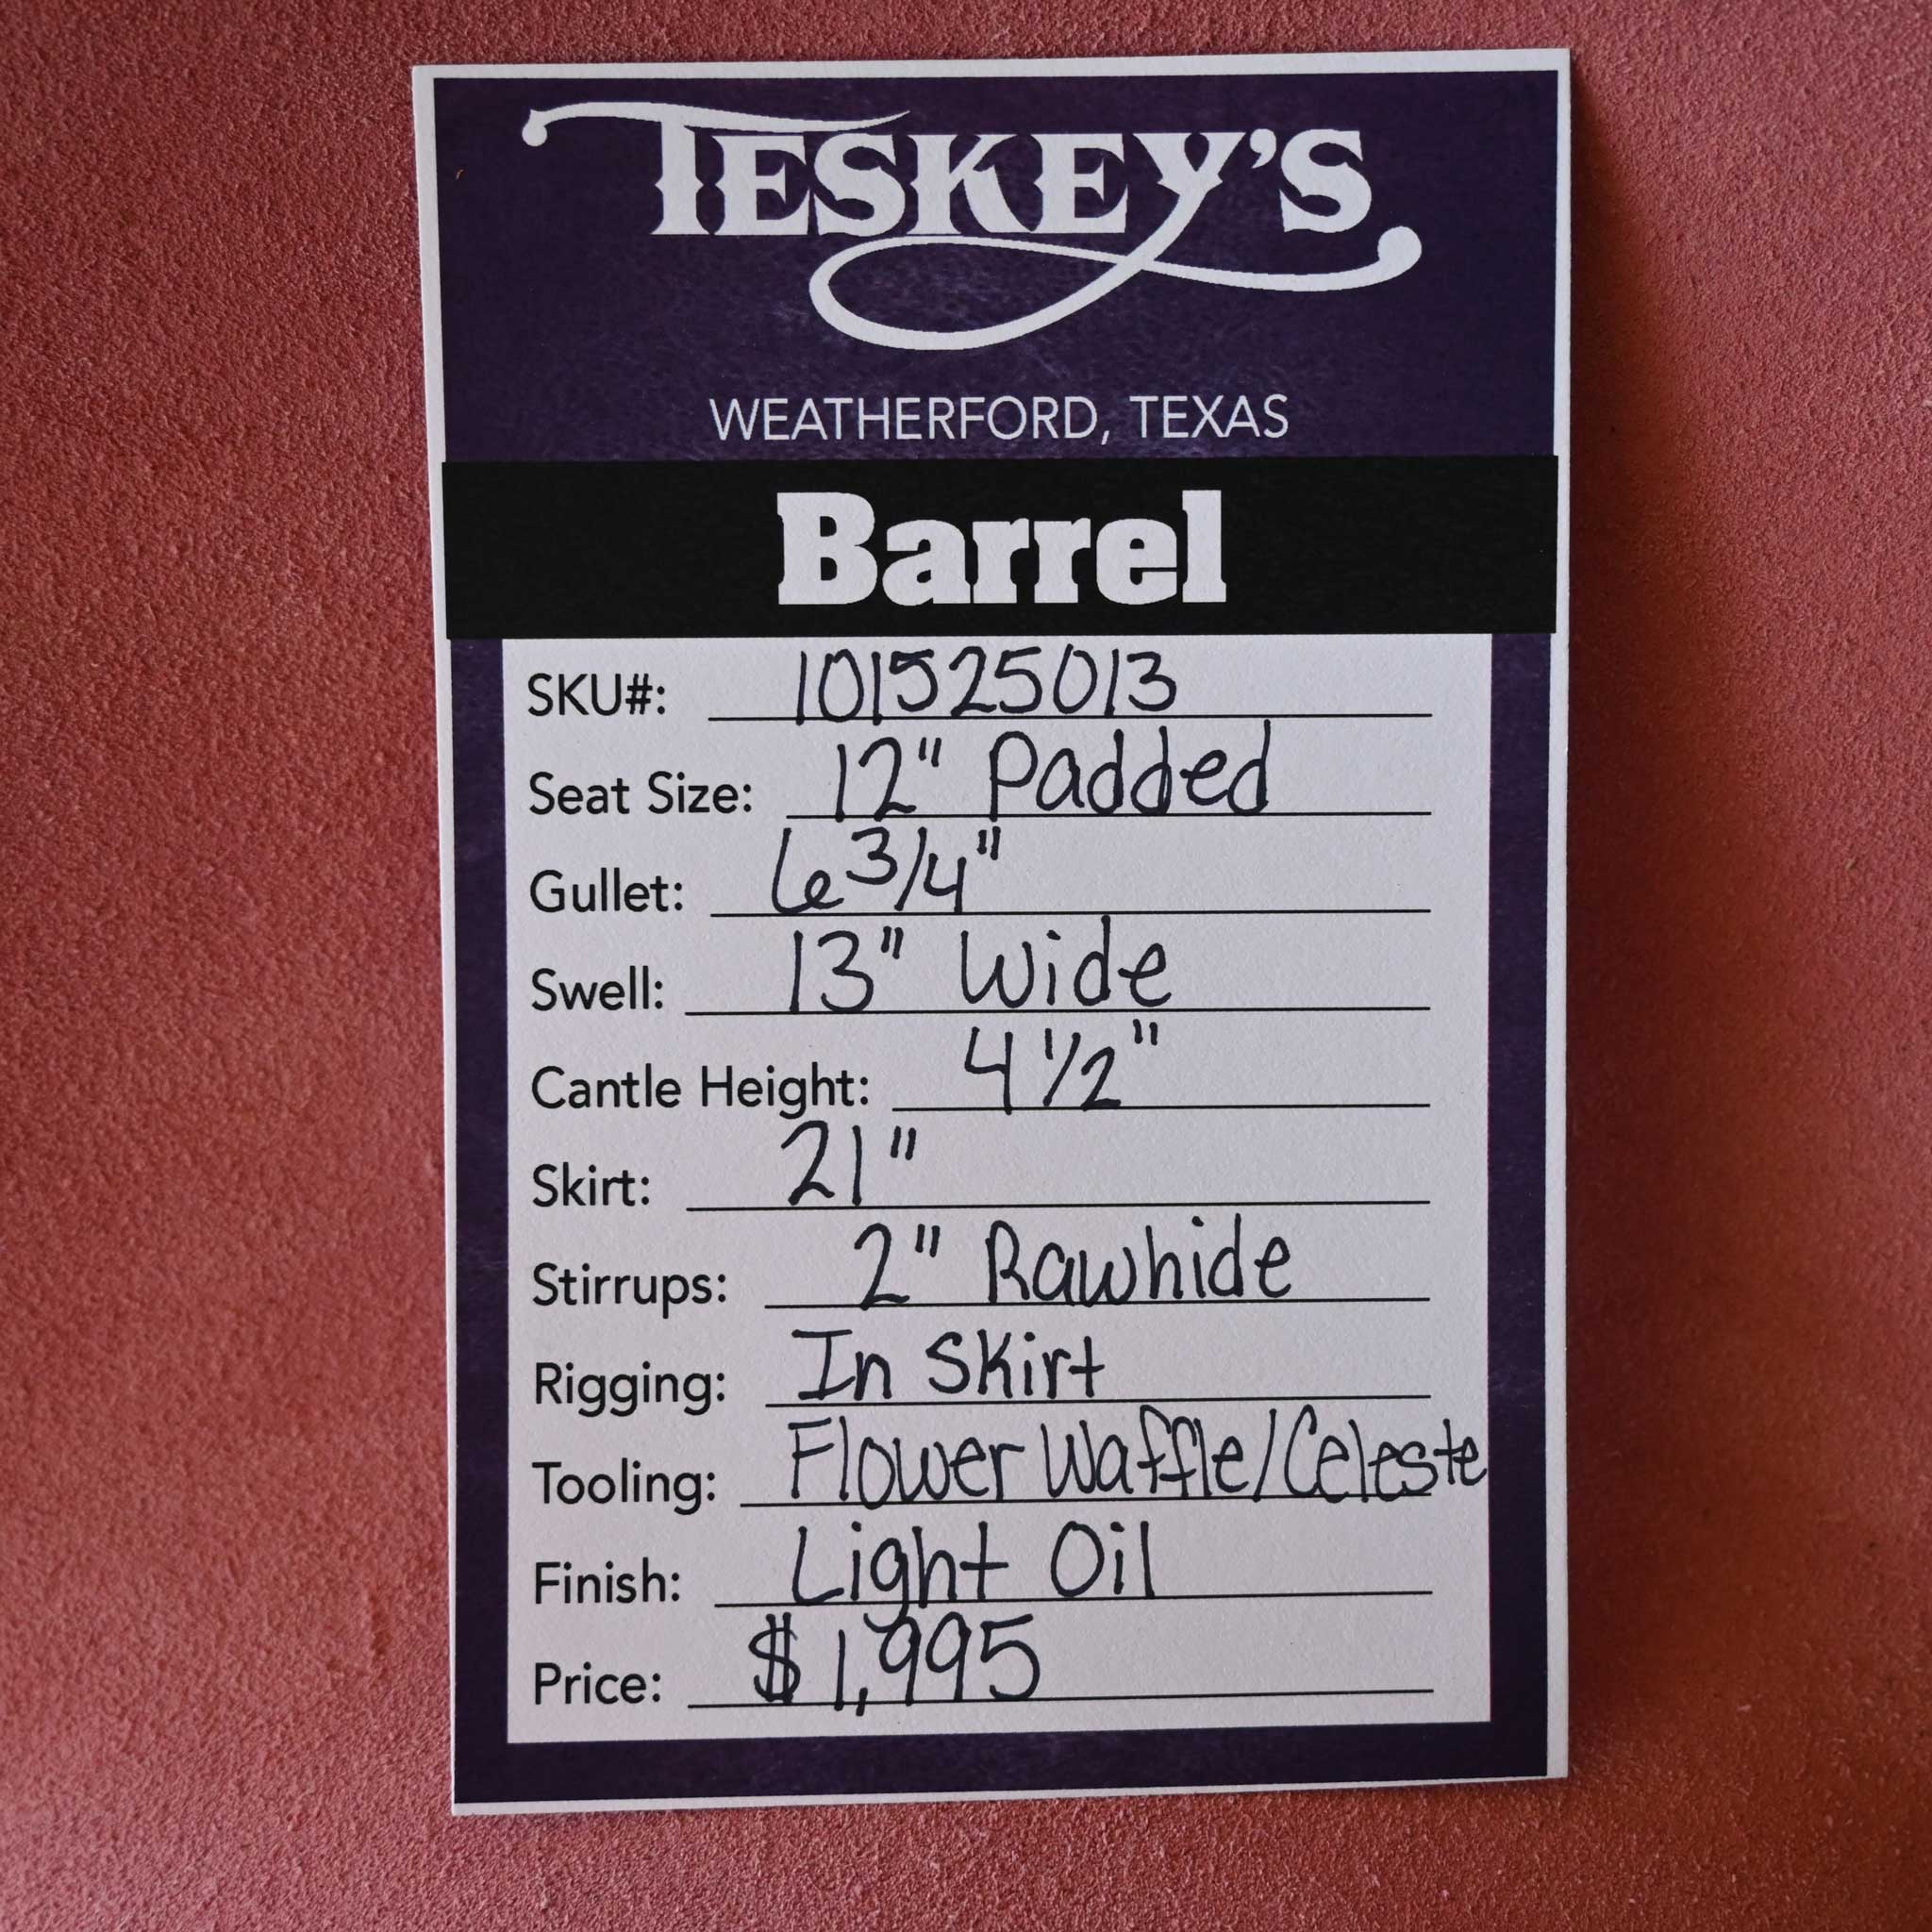 TESKEY'S
WEATHERFORD, TEXAS
Barrel
SKU#: 101525013
Seat Size: 12" Padded
Gullet: 6 3/4"
Swell: 13" Wide
Cantle Height: 4 1/2"
Skirt: 21"
Stirrups: 2" Rawhide
Rigging: In Skirt
Tooling: Flower Waffle/Celeste
Finish: Light Oil
Price: $1,995